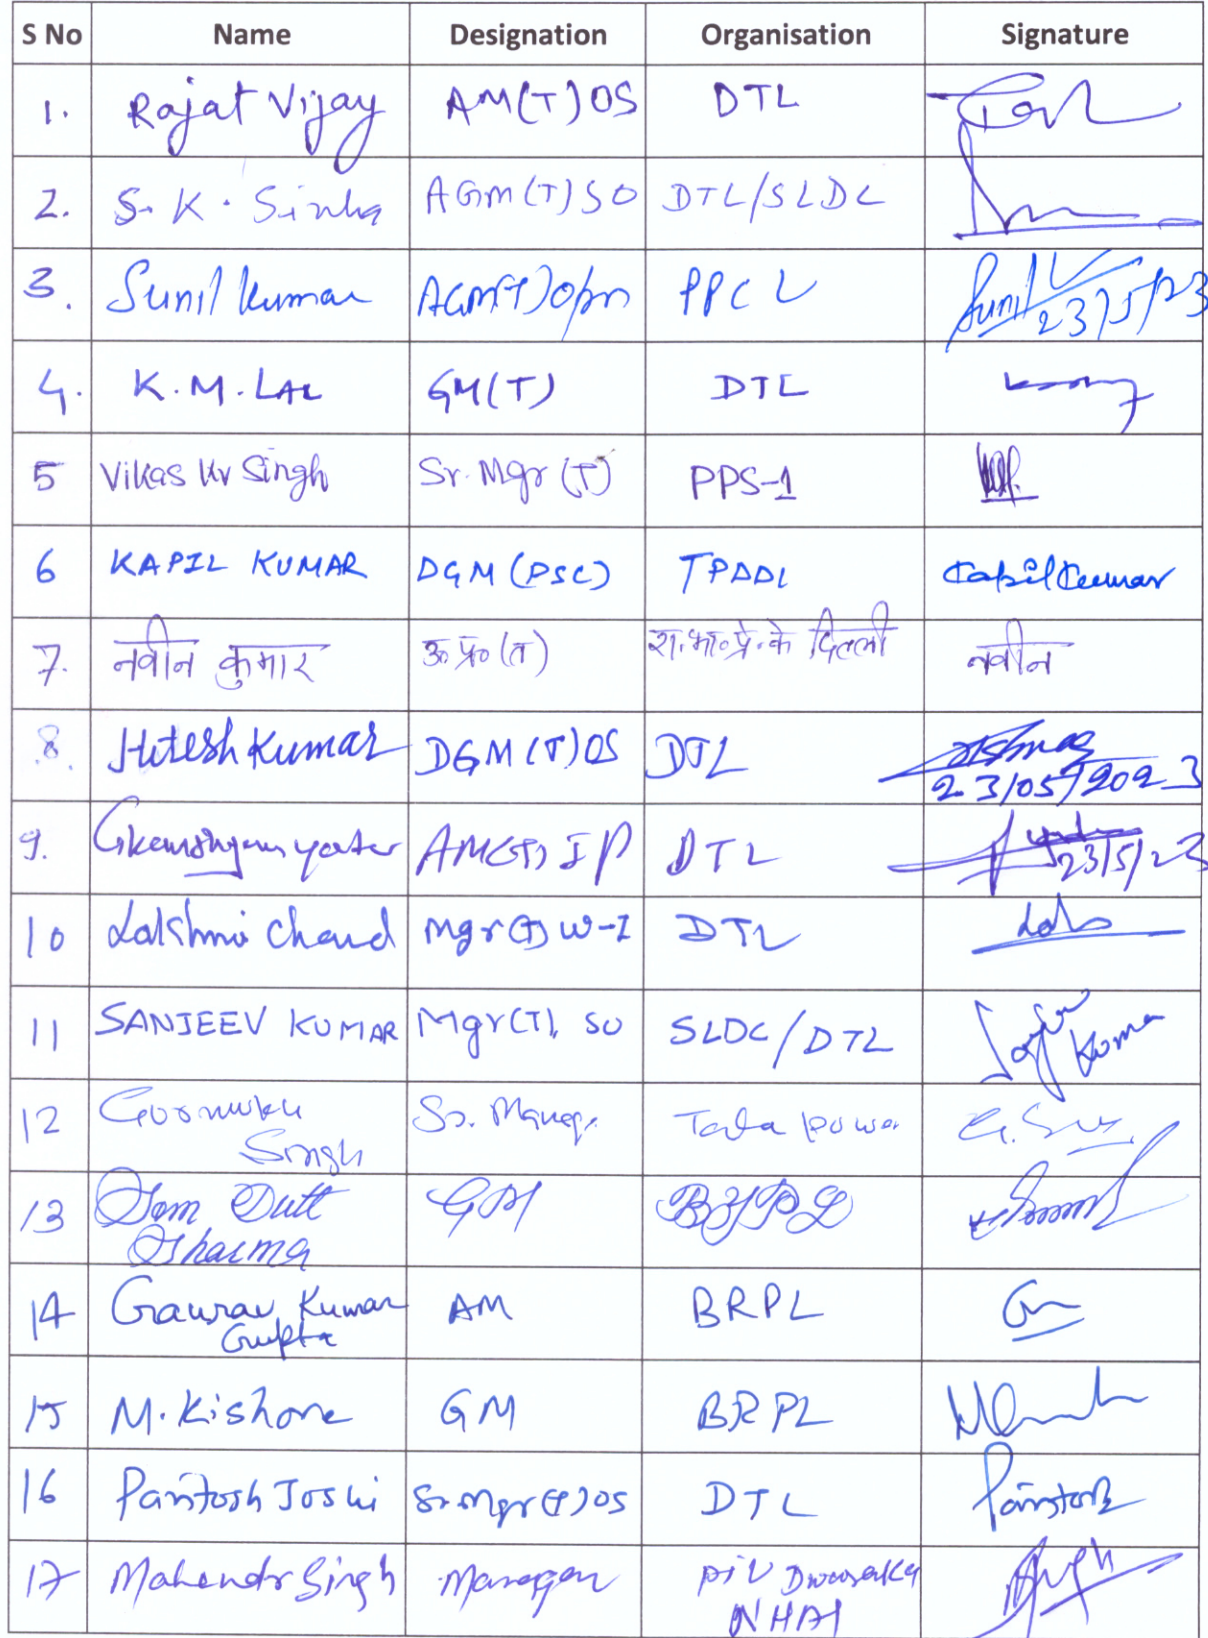 S No Name Designation Organisation Signature
1. Rajat Vijay AM(T)OS DTL
2. S. K. Sinha AGM(T)SO DTL/SLDC
3. Sunil Kumar AGM(T)Opn PPCL Sunil 23/5/23
4. K.M. LAL GM(T) DTL
5 Vikas Kr Singh Sr. Mgr (T) PPS-1
6 KAPIL KUMAR DGM (PSC) TPDDL Kapil Kumar
7. नवीन कुमार उ० प्र० (त) रा.भा.प्रे.के दिल्ली नवीन
8. Hitesh Kumar DGM (T)OS DTL 23/05/2023
9. Ghanshyam yadav AM(T) IP DTL 23/5/23
10 Lakshmi Chand Mgr(T) W-I DTL
11 SANJEEV KUMAR Mgr(T), SO SLDC/DTL Kumar
12 Gurmukh Singh Sr. Manager Tata power G. Singh
13 Som Dutt Sharma GM BYPL
14 Gaurav Kumar Gupta AM BRPL
15 M. Kishore GM BRPL
16 Paritosh Joshi Sr. Mgr(T)OS DTL Paritosh
17 Mahendr Singh Manager PIU Dwarka NHAI